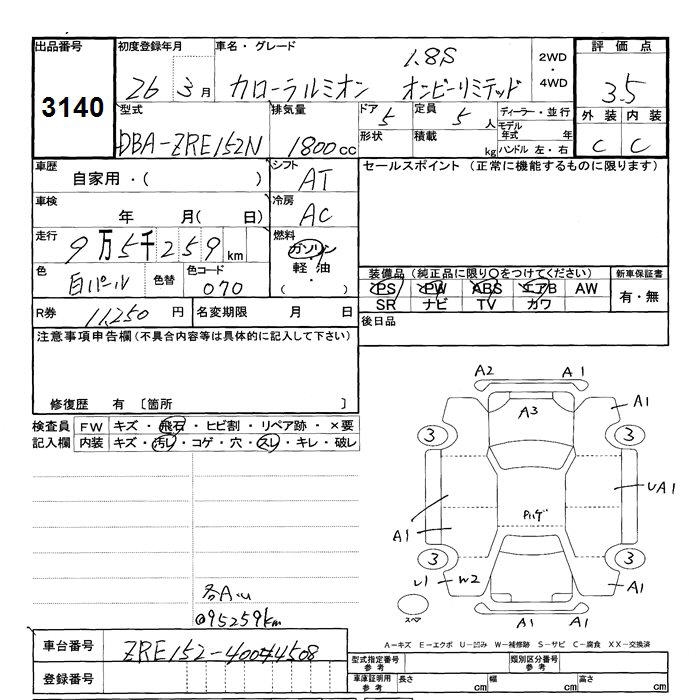 出品番号 初度登録年月 車名・グレード 評価点
3140 26年 3月 カローラルミオン 1.8S オンビーリミテッド 2WD・4WD 3.5
型式 排気量 ドア 定員 ディーラー・並行 外装 内装
DBA-ZRE152N 1800cc 5 5人 モデル年式 年 C C
形状 積載 kg ハンドル 左・右
車歴 シフト セールスポイント (正常に機能するものに限ります)
自家用・( ) AT
車検 冷房
年 月( 日) AC
走行 燃料
9万5千259km ガソリン
色 色替 色コード 軽油 装備品 (純正品に限り○をつけてください) 新車保証書
白パール 070 ・( ) PS PW ABS エアB AW 有・無
SR ナビ TV カワ
R券 11,250円 名変期限 月 日 後日品
注意事項申告欄(不具合内容等は具体的に記入して下さい)
修復歴 有 〔箇所 〕
検査員 FW キズ・飛石・ヒビ割・リペア跡・×要
記入欄 内装 キズ・汚レ・コゲ・穴・スレ・キレ・破レ
A2 A1
A3 A1
3 3
UA1
A1
3 3
U1 W2 A1
スペア
A1 A1
@95259km
A-キズ E-エクボ U-凹み W-補修跡 S-サビ C-腐食 XX-交換済
車台番号 ZRE152-40044508
型式指定番号 参考 類別区分番号 参考
登録番号 車庫証明用 参考 長さ cm 幅 cm 高さ cm